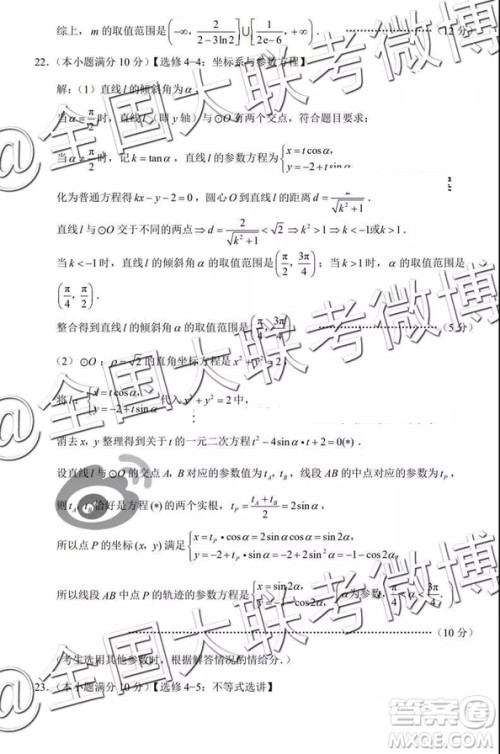 综上，m 的取值范围是(-∞, 2/(2-3ln2)]∪[1/(2e-6), +∞). (12 分)
22.（本小题满分 10 分）【选修 4-4：坐标系与参数方程】
解:（1）直线 l 的倾斜角为 α
当 α = π/2 时，直线 l（即 y 轴）与⊙O 有两个交点，符合题目要求；
当 α ≠ π/2 时，记 k = tanα，直线 l 的参数方程为 {x = t cosα, y = -2 + t sinα
化为普通方程得 kx - y - 2 = 0，圆心 O 到直线 l 的距离 d = /√(k²+1).
直线 l 与⊙O 交于不同的两点 ⇒ d = 2/√(k²+1) < √2 ⇒ k² > 1 ⇒ k < -1或k > 1.
当 k < -1 时，直线 l 的倾斜角 α 的取值范围是 (π/2, 3π/4)；当 k > 1 时，直线 l 的倾斜角 α 的取值范围是
(π/4, π/2).
整合得到直线 l 的倾斜角 α 的取值范围是 (π/4, 3π/4). (5 分)
（2）⊙O：ρ = √2 的直角坐标方程是 x² + y² = 2，
将 l：{x = t cosα, y = -2 + t sinα 代入 x² + y² = 2 中，
消去 x, y 整理得到关于 t 的一元二次方程 t² - 4sinα·t + 2 = 0(*).
设直线 l 与⊙O 的交点 A, B 对应的参数值为 t_A, t_B，线段 AB 的中点对应的参数为 t_P，
则 t_A, t_B 恰好是方程(*)的两个实根，t_P = (t_A + t_B)/2 = 2sinα，
所以点 P 的坐标 (x, y) 满足 {x = t_P·cosα = 2sinαcosα = sin2α, y = -2 + t_P·sinα = -2 + 2sin²α = -1 - cos2α
所以线段 AB 中点 P 的轨迹的参数方程为 {x = sin2α, y = -1 - cos2α (α 为参数，π/4 < α < 3π/4).
(10 分)
（考生选用其他参数时，根据解答情况酌情给分.）
23.（本小题满分 10 分）【选修 4-5：不等式选讲】
@全国大联考微博
@全国大联考微博
@全国大联考微博
答案圈
MXQE.COM